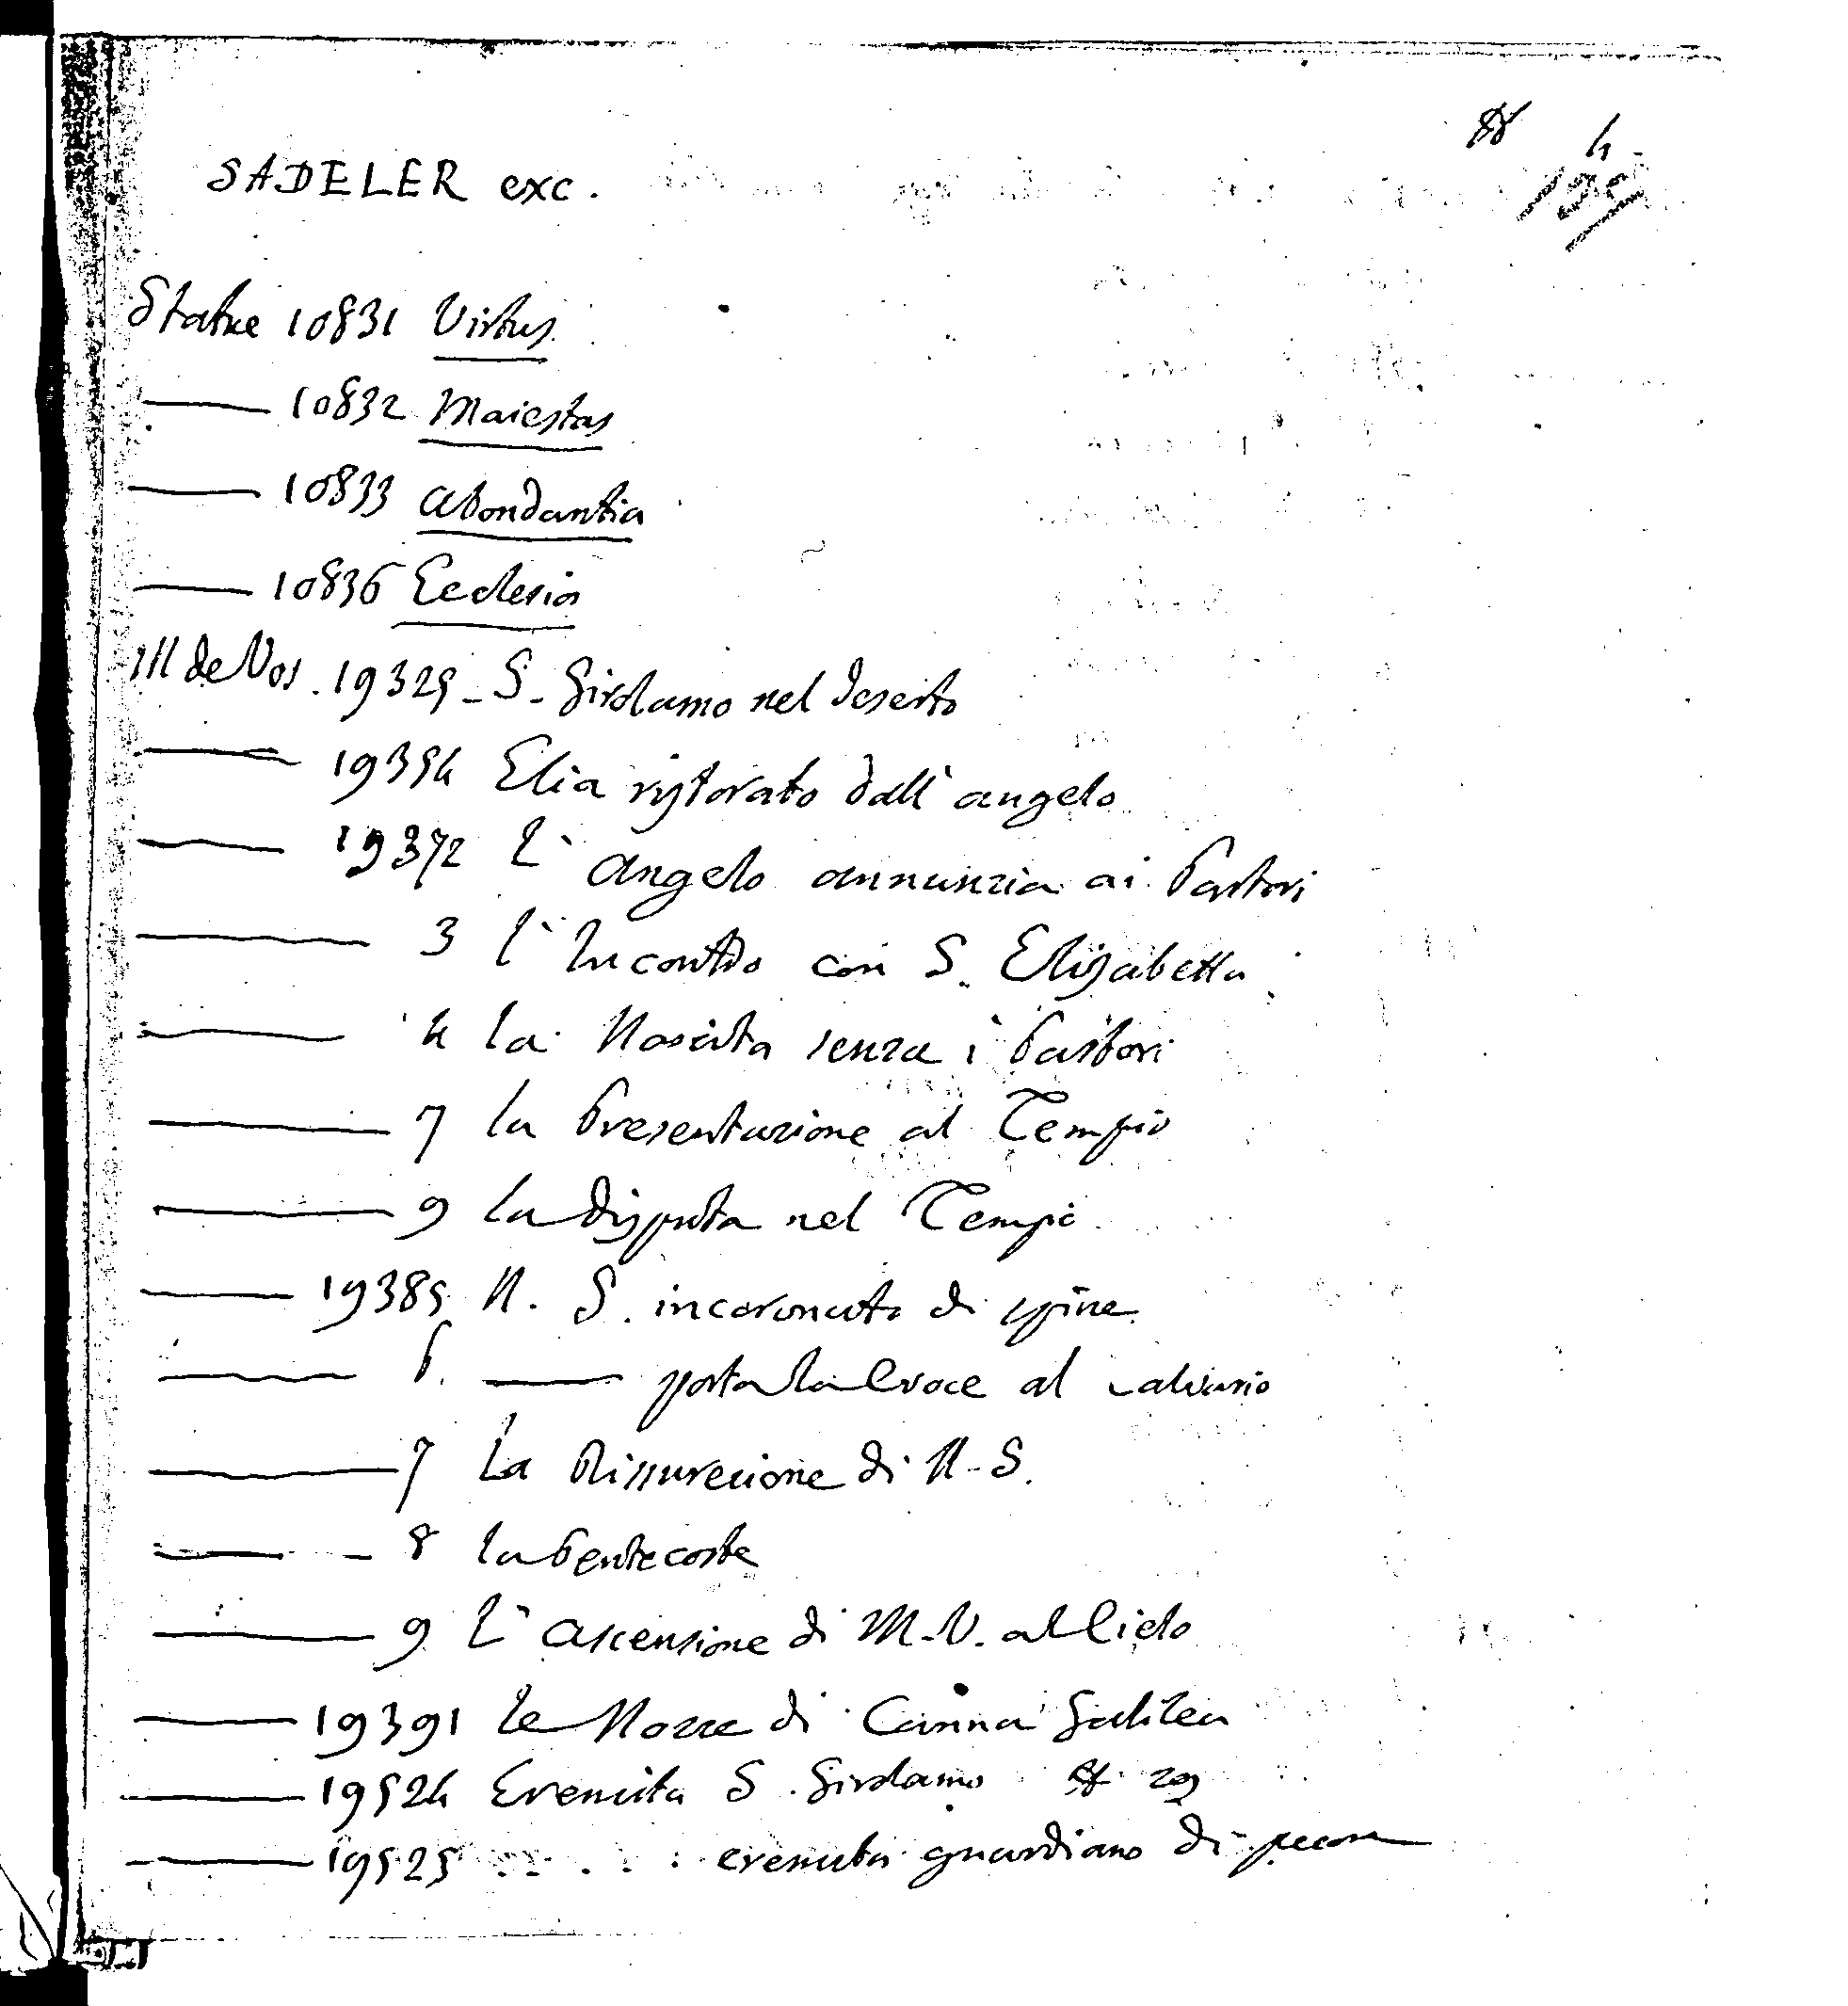 4
SADELER exc.
Statue 10831 Virtus
—— 10832 Maiestas
—— 10833 Abondantia
—— 10836 Ecclesia
M de Vos. 19325 - S. Girolamo nel deserto
—— 19354 Elia ristorato dall' angelo
—— 19372 L' Angelo annunzia ai Pastori
—— 3 l' Incontro con S. Elisabetta
—— 4 la Nascita senza i Pastori
—— 7 la Presentazione al Tempio
—— 9 la disputa nel Tempio
—— 19385 N. S. incoronato di spine
—— 6. —— porta la Croce al Calvario
—— 7 La Rissurezione di N. S.
—— 8 la Pentecoste
—— 9 L' ascensione di M. V. al Cielo
—— 19391 Le Nozze di Canna Galilea
—— 19524 Eremita S. Girolamo 29
—— 19525 . . . . eremita guardiano di